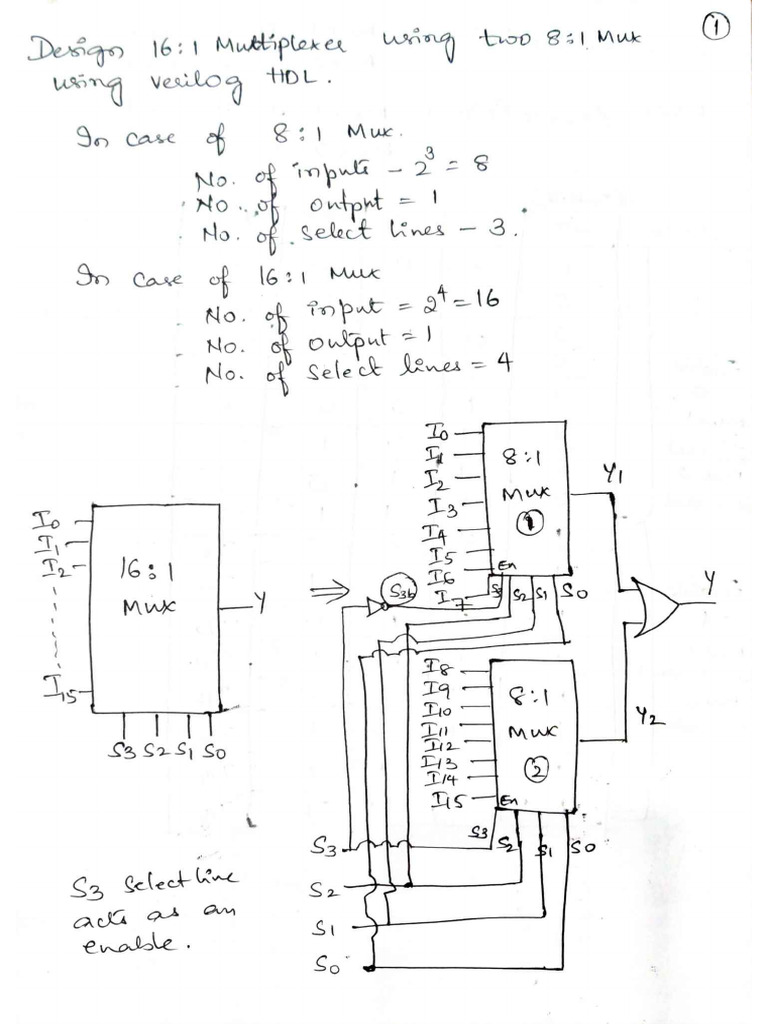 ①
Design 16:1 Multiplexer using two 8:1 Mux
using verilog HDL.
In case of 8:1 Mux.
No. of inputs - 2³ = 8
No. of output = 1
No. of select lines - 3.
In case of 16:1 Mux
No. of input = 2⁴ = 16
No. of output = 1
No. of select lines = 4
I0
I1
I2
I15
16:1
Mux
Y
S3 S2 S1 S0
⇒
I0
I1
I2
I3
I4
I5
I6
I7
8:1
Mux
①
En
S3 S2 S1 S0
S3b
Y1
Y
I8
I9
I10
I11
I12
I13
I14
I15
8:1
Mux
②
En
S3 S2 S1 S0
Y2
S3
S2
S1
S0
S3 select line
acts as an
enable.